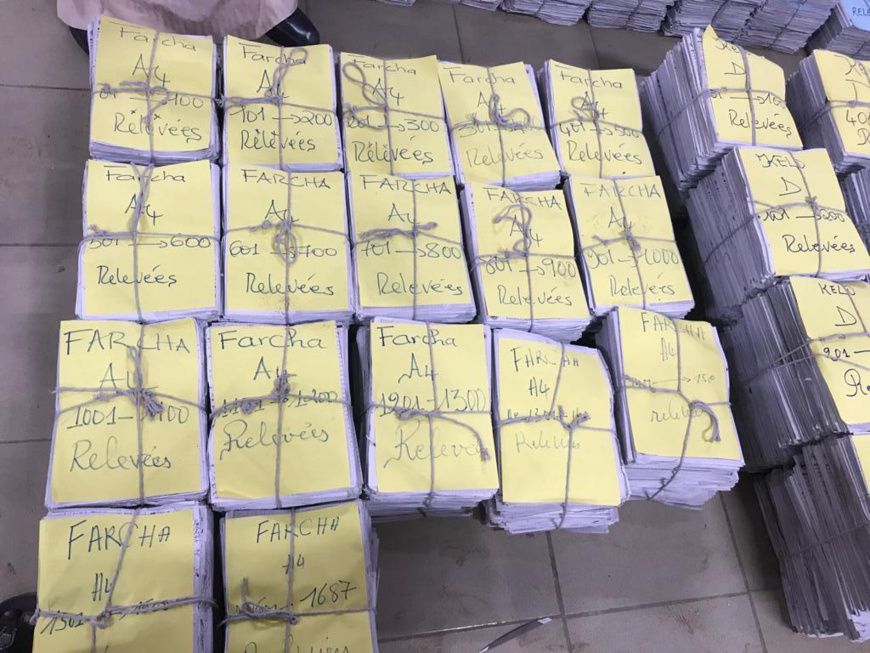 RELE
Farcha
A4
01 → 100
Relevées
Farcha
A4
101 → 200
Relevées
Farcha
A4
201 → 300
Relevées
Farcha
A4
Relevées
Farcha
A4
401 → 500
Relevées
D
Relevées
D
Farcha
A4
501 → 600
Relevées
FARCHA
A4
601 → 700
Relevées
FARCHA
A4
701 → 800
Relevées
FARCHA
A4
801 → 900
Relevées
FARCHA
A4
901 → 1000
Relevées
D
Relevées
FARCHA
A4
1001 - 1100
Relevées
Farcha
A4
1101 → 1200
Relevées
Farcha
A4
1201 - 1300
Relevées
FARCHA
A4
FARCHA
A4
relevées
D
901 -
FARCHA
A4
FARCHA
A4
1687